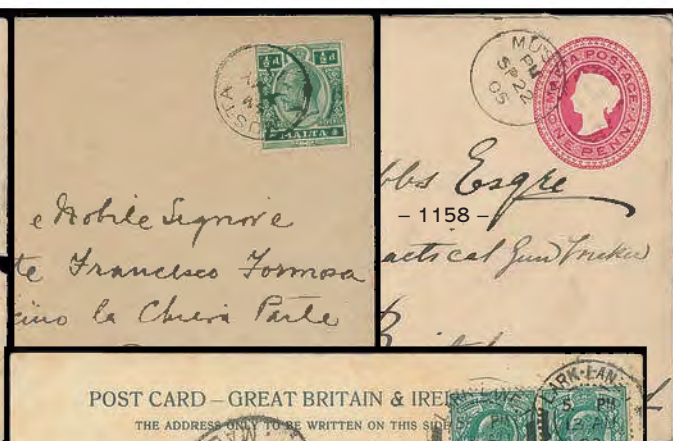 ½d ½d
MALTA
USTA
e Nobile Signore
te Francesco Formosa
cino la Chiesa Parle
MALTA POSTAGE
ONE PENNY
MUS
PM
SP 22
05
bbs Esqre
– 1158 –
actical Gun Maker
POST CARD – GREAT BRITAIN & IRE
THE ADDRESS ONLY TO BE WRITTEN ON THIS SID
MA
MARK-LAN
5 PM